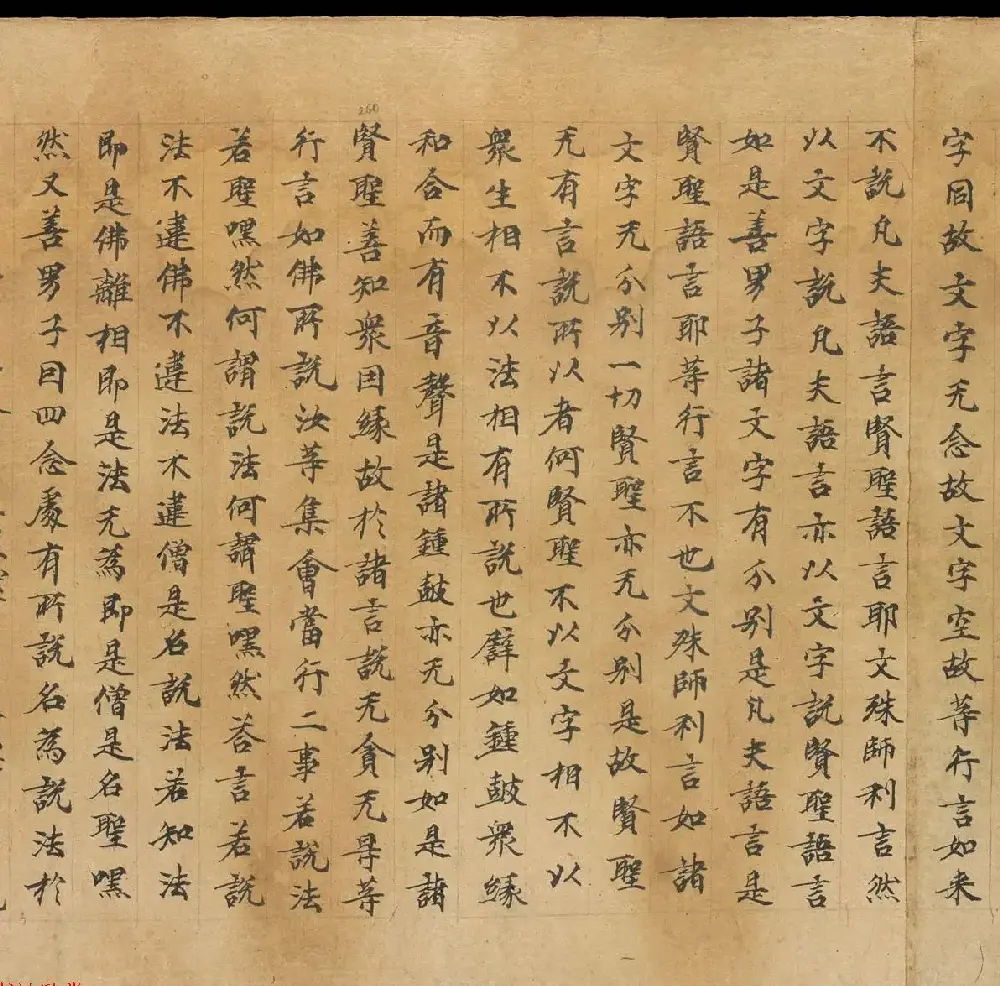 字同故文字无念故文字空故等行言如来
不説凡夫語言賢聖語言耶文殊師利言然
以文字説凡夫語言亦以文字説賢聖語言
如是善男子諸文字有分别是凡夫語言是
賢聖語言耶等行言不也文殊師利言如諸
文字无分别一切賢聖亦无分别是故賢聖
无有言説所以者何賢聖不以文字相不以
衆生相不以法相有所説也譬如鍾鼓衆緣
和合而有音聲是諸鍾鼓亦无分别如是諸
賢聖善知衆因緣故於諸言説无貪无㝵等
行言如佛所説汝等集會當行二事若説法
若聖嘿然何謂説法何謂聖嘿然荅言若説
法不違佛不違法不違僧是名説法若知法
即是佛離相即是法无為即是僧是名聖嘿
然又善男子因四念處有所説名為説法於
260